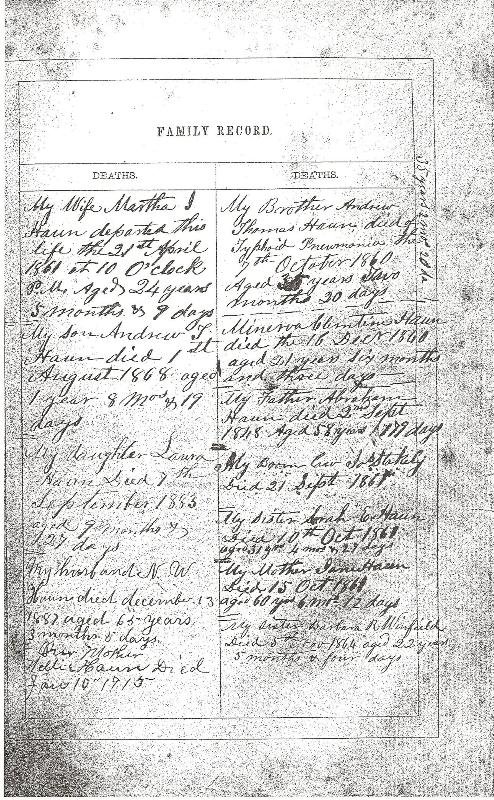 FAMILY RECORD.
DEATHS.
My Wife Martha J
Haun departed this
life the 21st April
1861 at 10 O'clock
P.M. Aged 24 years
5 months & 9 days
My son Andrew J.
Haun died 1st
August 1868 aged
1 year 8 Mos & 19
days
My daughter Laura
Haun Died 7th
September 1883
aged 9 months &
27 days
My husband N. W.
Haun died december 13
1887 aged 65 years
3 months 8 days.
Our Mother
Nellie Haun Died
Jan 10th 1915
DEATHS.
My Brother Andrew
Thomas Haun died of
Typhoid Pneumonia the
7th October 1860
Aged years Two
months 20 days
Minerva Clementine Haun
died the 16 Decr 1860
aged 21 years Six months
and three days
My Father Abraham
Haun died 2nd Sept
1848 Aged 58 years days
My Broom law Stakely
Died 21 Sept 1861
My Sister Sarah E. Haun
Died 10th Oct 1861
aged 31 yrs 4 mos & 27 days
My Mother Jane Haun
Died 15 Oct 1861
aged 60 yrs 6 mos 12 days
My sister Barbara R Winfield
Died 5th Nov 1864 aged 22 years
5 months & four days